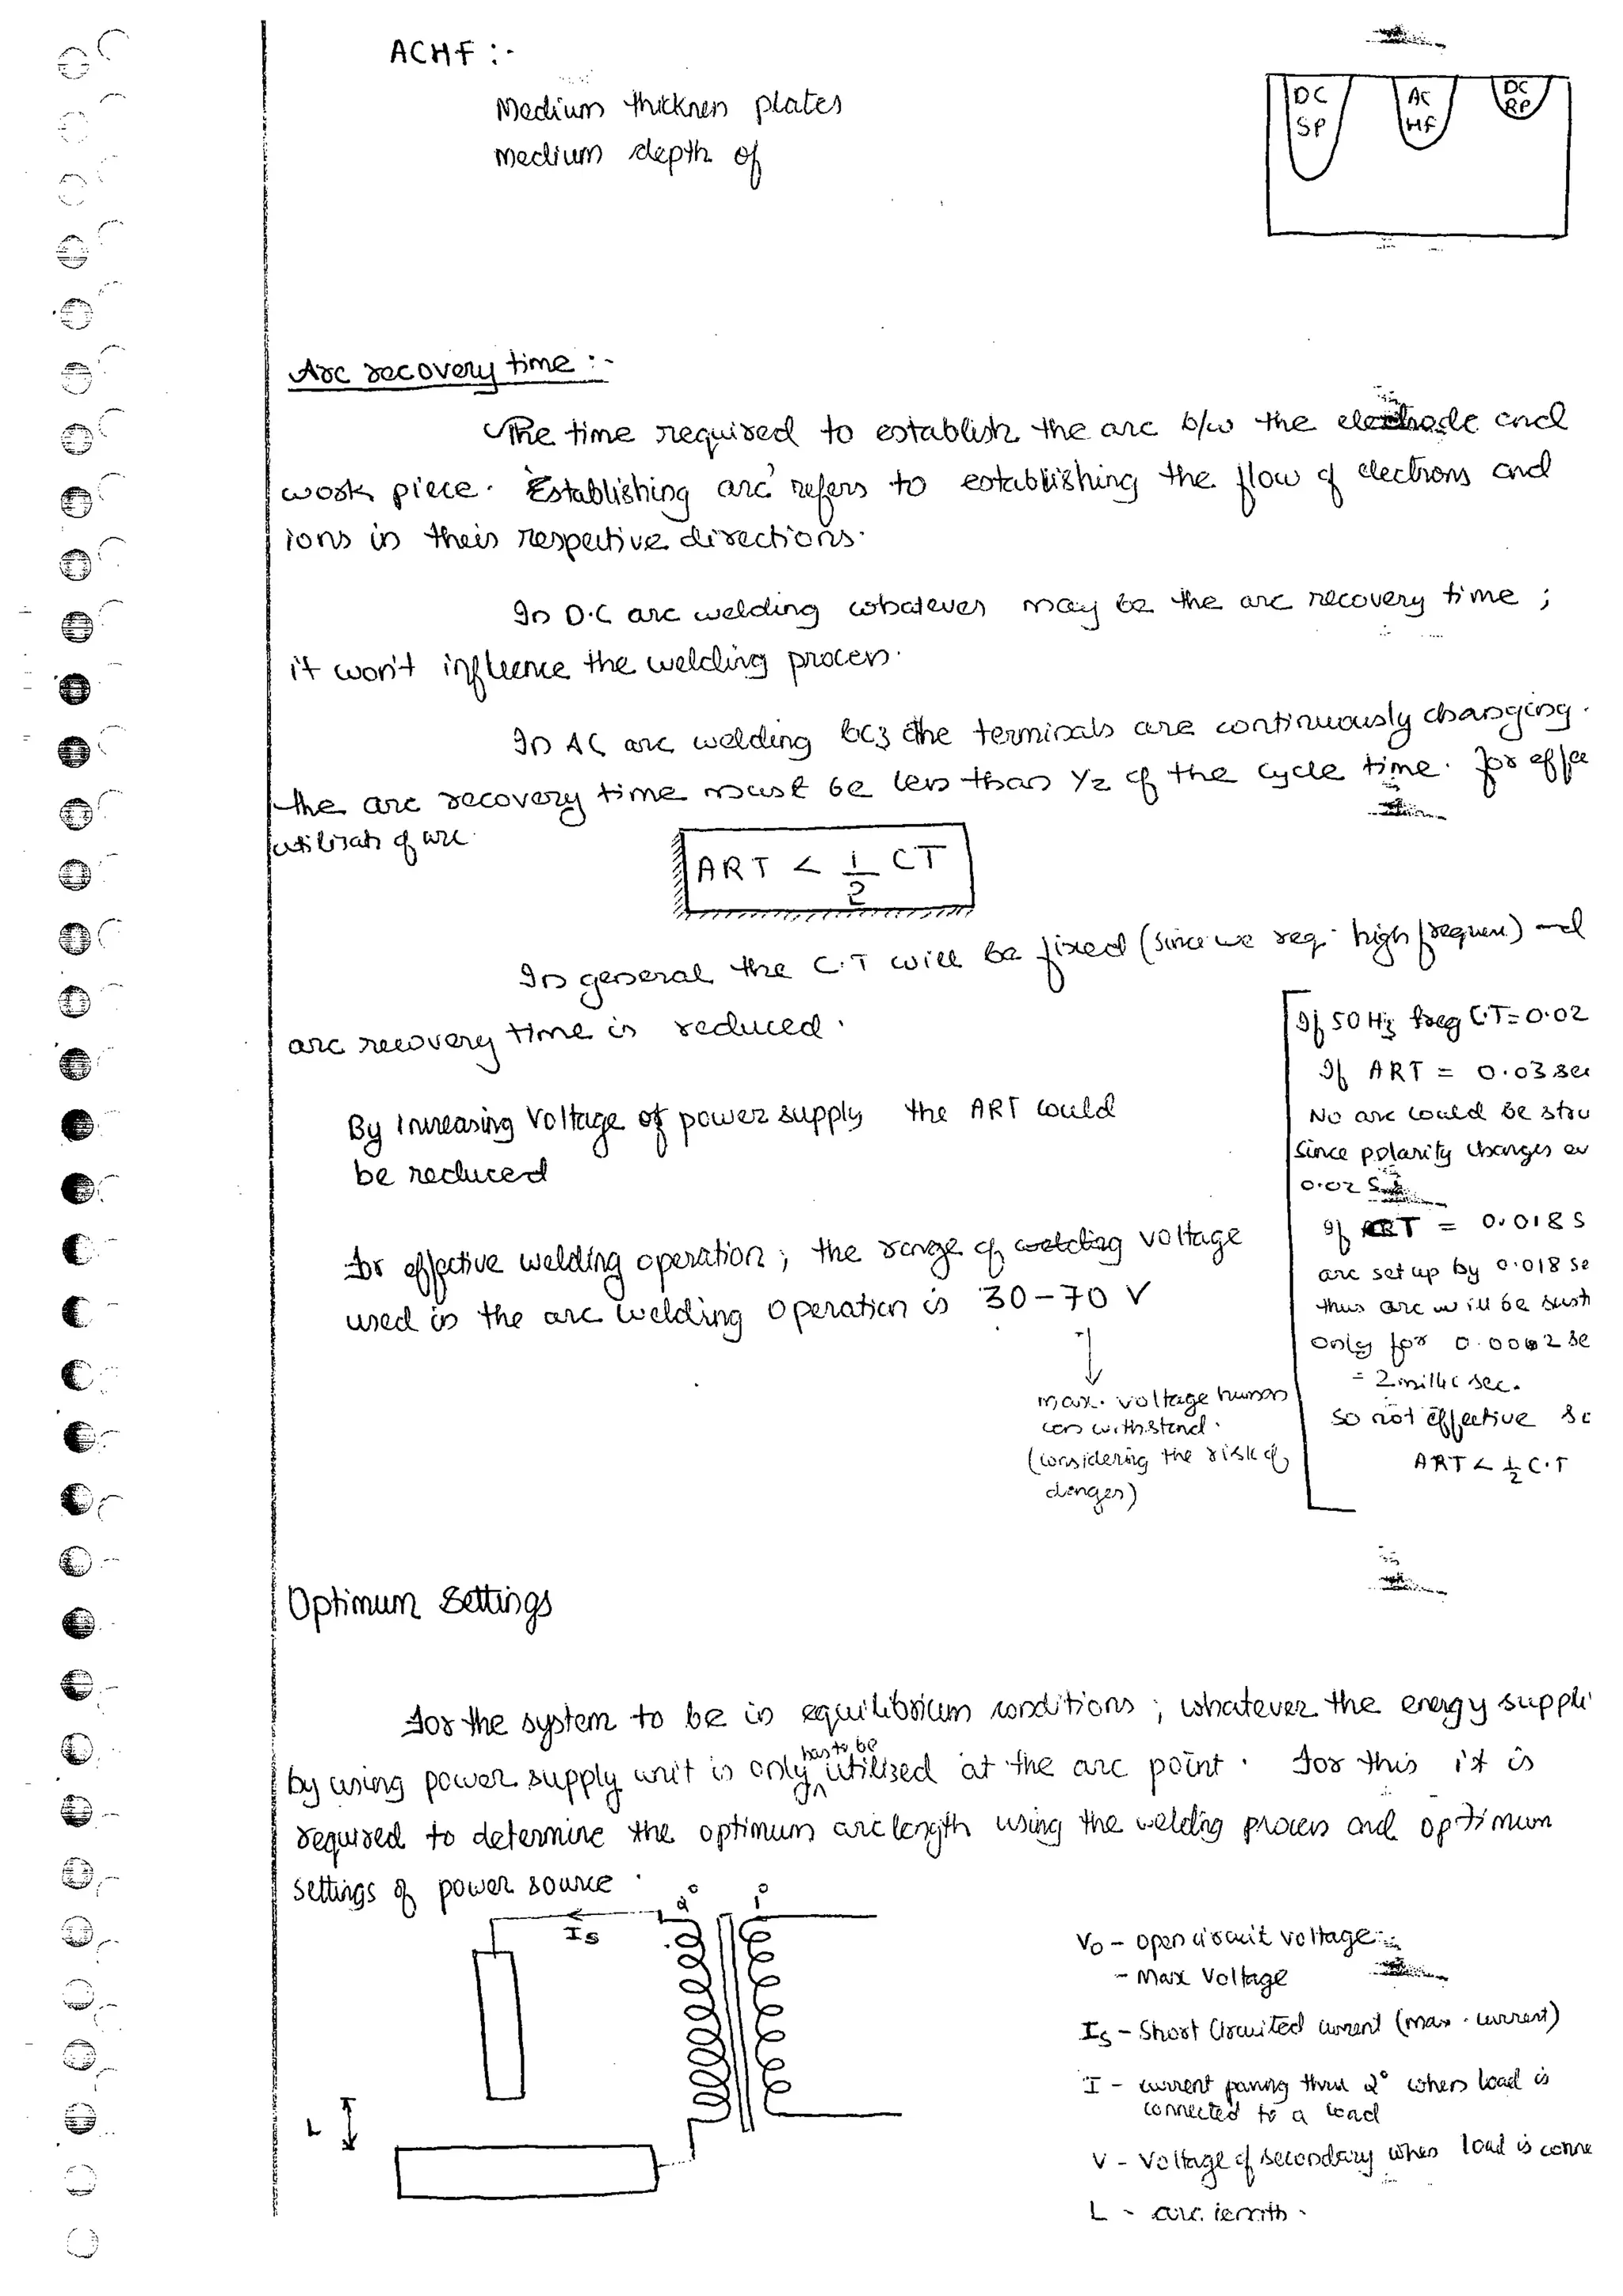 ACHF :-
Medium thickness plates
Medium depth of
DC SP
AC HF
DC RP
Arc recovery time :-
The time required to establish the arc b/w the electrode and
work piece. 'Establishing arc' refers to establishing the flow of electrons and
ions in their respective directions.
In D.C arc welding whatever may be the arc recovery time ;
it won't influence the welding process.
In AC arc welding bcz the terminals are continuously changing.
the arc recovery time must be less than 1/2 of the cycle time. for effec
utilisatn of arc.
ART < 1/2 CT
In general the C.T will be fixed (since we req. high frequen.) and
arc recovery time is reduced.
By increasing Voltage of power supply the ART could
be reduced
for effective welding operation ; the range of welding voltage
used in the arc welding operation is 30-70 V
max. voltage human
can withstand.
(considering the risk of
danger)
If 50 Hz freq C.T = 0.02
If ART = 0.03 sec
No arc could be stru
Since polarity changes ev
0.02 S
If ART = 0.018 S
arc set up by 0.018 se
thus arc will be sust
only for 0.002 se
= 2 milli sec.
so not effective so
ART < 1/2 C.T
Optimum Settings
for the system to be in equilibrium conditions ; whatever the energy suppli
by using power supply unit is only has to be utilised at the arc point. for this it is
required to determine the optimum arc length using the welding process and optimum
settings of power source.
Is
2°
1°
L
Vo - open circuit voltage
- Max Voltage
Is - Short Circuited current (max. current)
I - current passing thru 2° when load is
connected to a load
V - Voltage of secondary when load is conne
L - arc length.